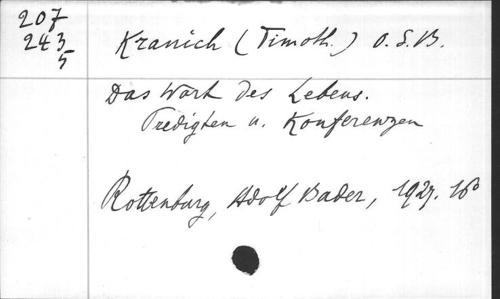 207
243
5
Kranich (Timoth.) O.S.B.
Das Wort des Lebens.
Predigten u. Konferenzen
Rottenburg, Adolf Bader, 1927. 16°